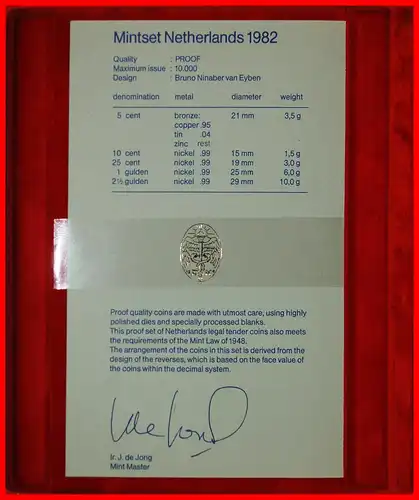 Mintset Netherlands 1982
Quality : PROOF
Maximum issue : 10.000
Design : Bruno Ninaber van Eyben
denomination metal diameter weight
5 cent bronze: 21 mm 3,5 g
copper .95
tin .04
zinc rest
10 cent nickel .99 15 mm 1,5 g
25 cent nickel .99 19 mm 3,0 g
1 gulden nickel .99 25 mm 6,0 g
2½ gulden nickel .99 29 mm 10,0 g
Proof quality coins are made with utmost care; using highly
polished dies and specially processed blanks.
This proof set of Netherlands legal tender coins also meets
the requirements of the Mint Law of 1948.
The arrangement of the coins in this set is derived from the
design of the reverses, which is based on the face value of
the coins within the decimal system.
Ir. J. de Jong
Mint Master